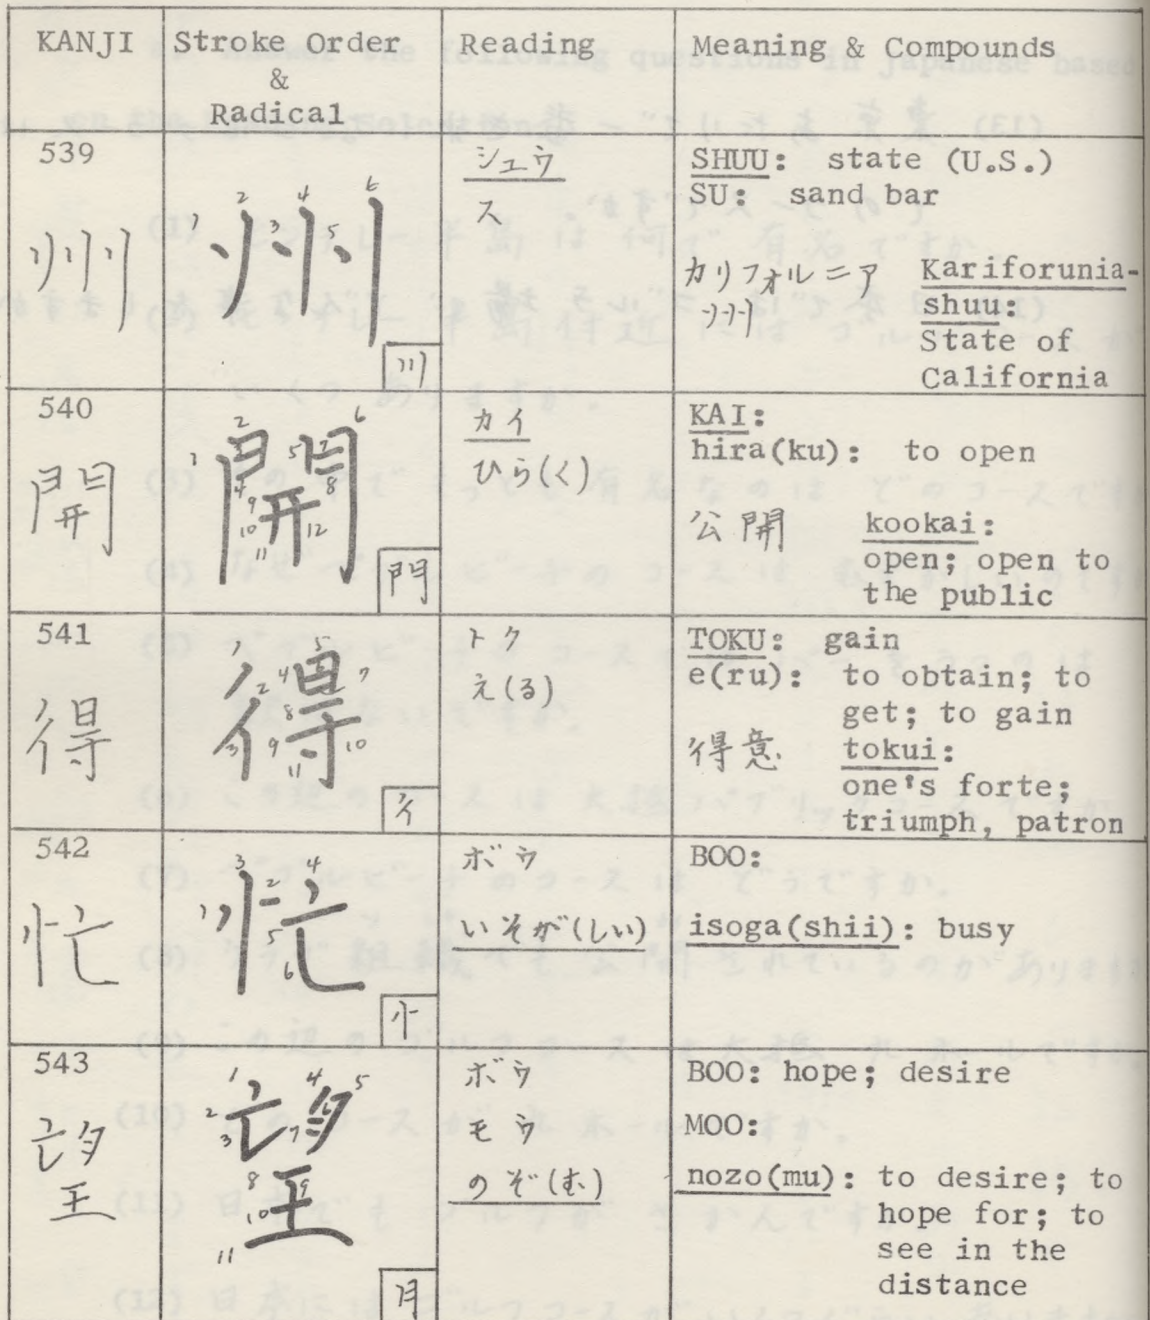 KANJI Stroke Order & Radical Reading Meaning & Compounds
539
州
1 2 3 4 5 6
川
シュウ
ス
SHUU: state (U.S.)
SU: sand bar
カリフォルニア Kariforunia-
州 shuu:
State of
California
540
開
1 2 3 4 5 6 7 8 9 10 11 12
門
カイ
ひら(く)
KAI:
hira(ku): to open
公開 kookai:
open; open to
the public
541
得
1 2 3 4 5 7 8 9 10 11
彳
トク
え(る)
TOKU: gain
e(ru): to obtain; to
get; to gain
得意 tokui:
one's forte;
triumph, patron
542
忙
1 2 3 4 5 6
忄
ボウ
いそが(しい)
BOO:
isoga(shii): busy
543
望
1 2 3 4 5 7 8 9 10 11
月
ボウ
モウ
のぞ(む)
BOO: hope; desire
MOO:
nozo(mu): to desire; to
hope for; to
see in the
distance